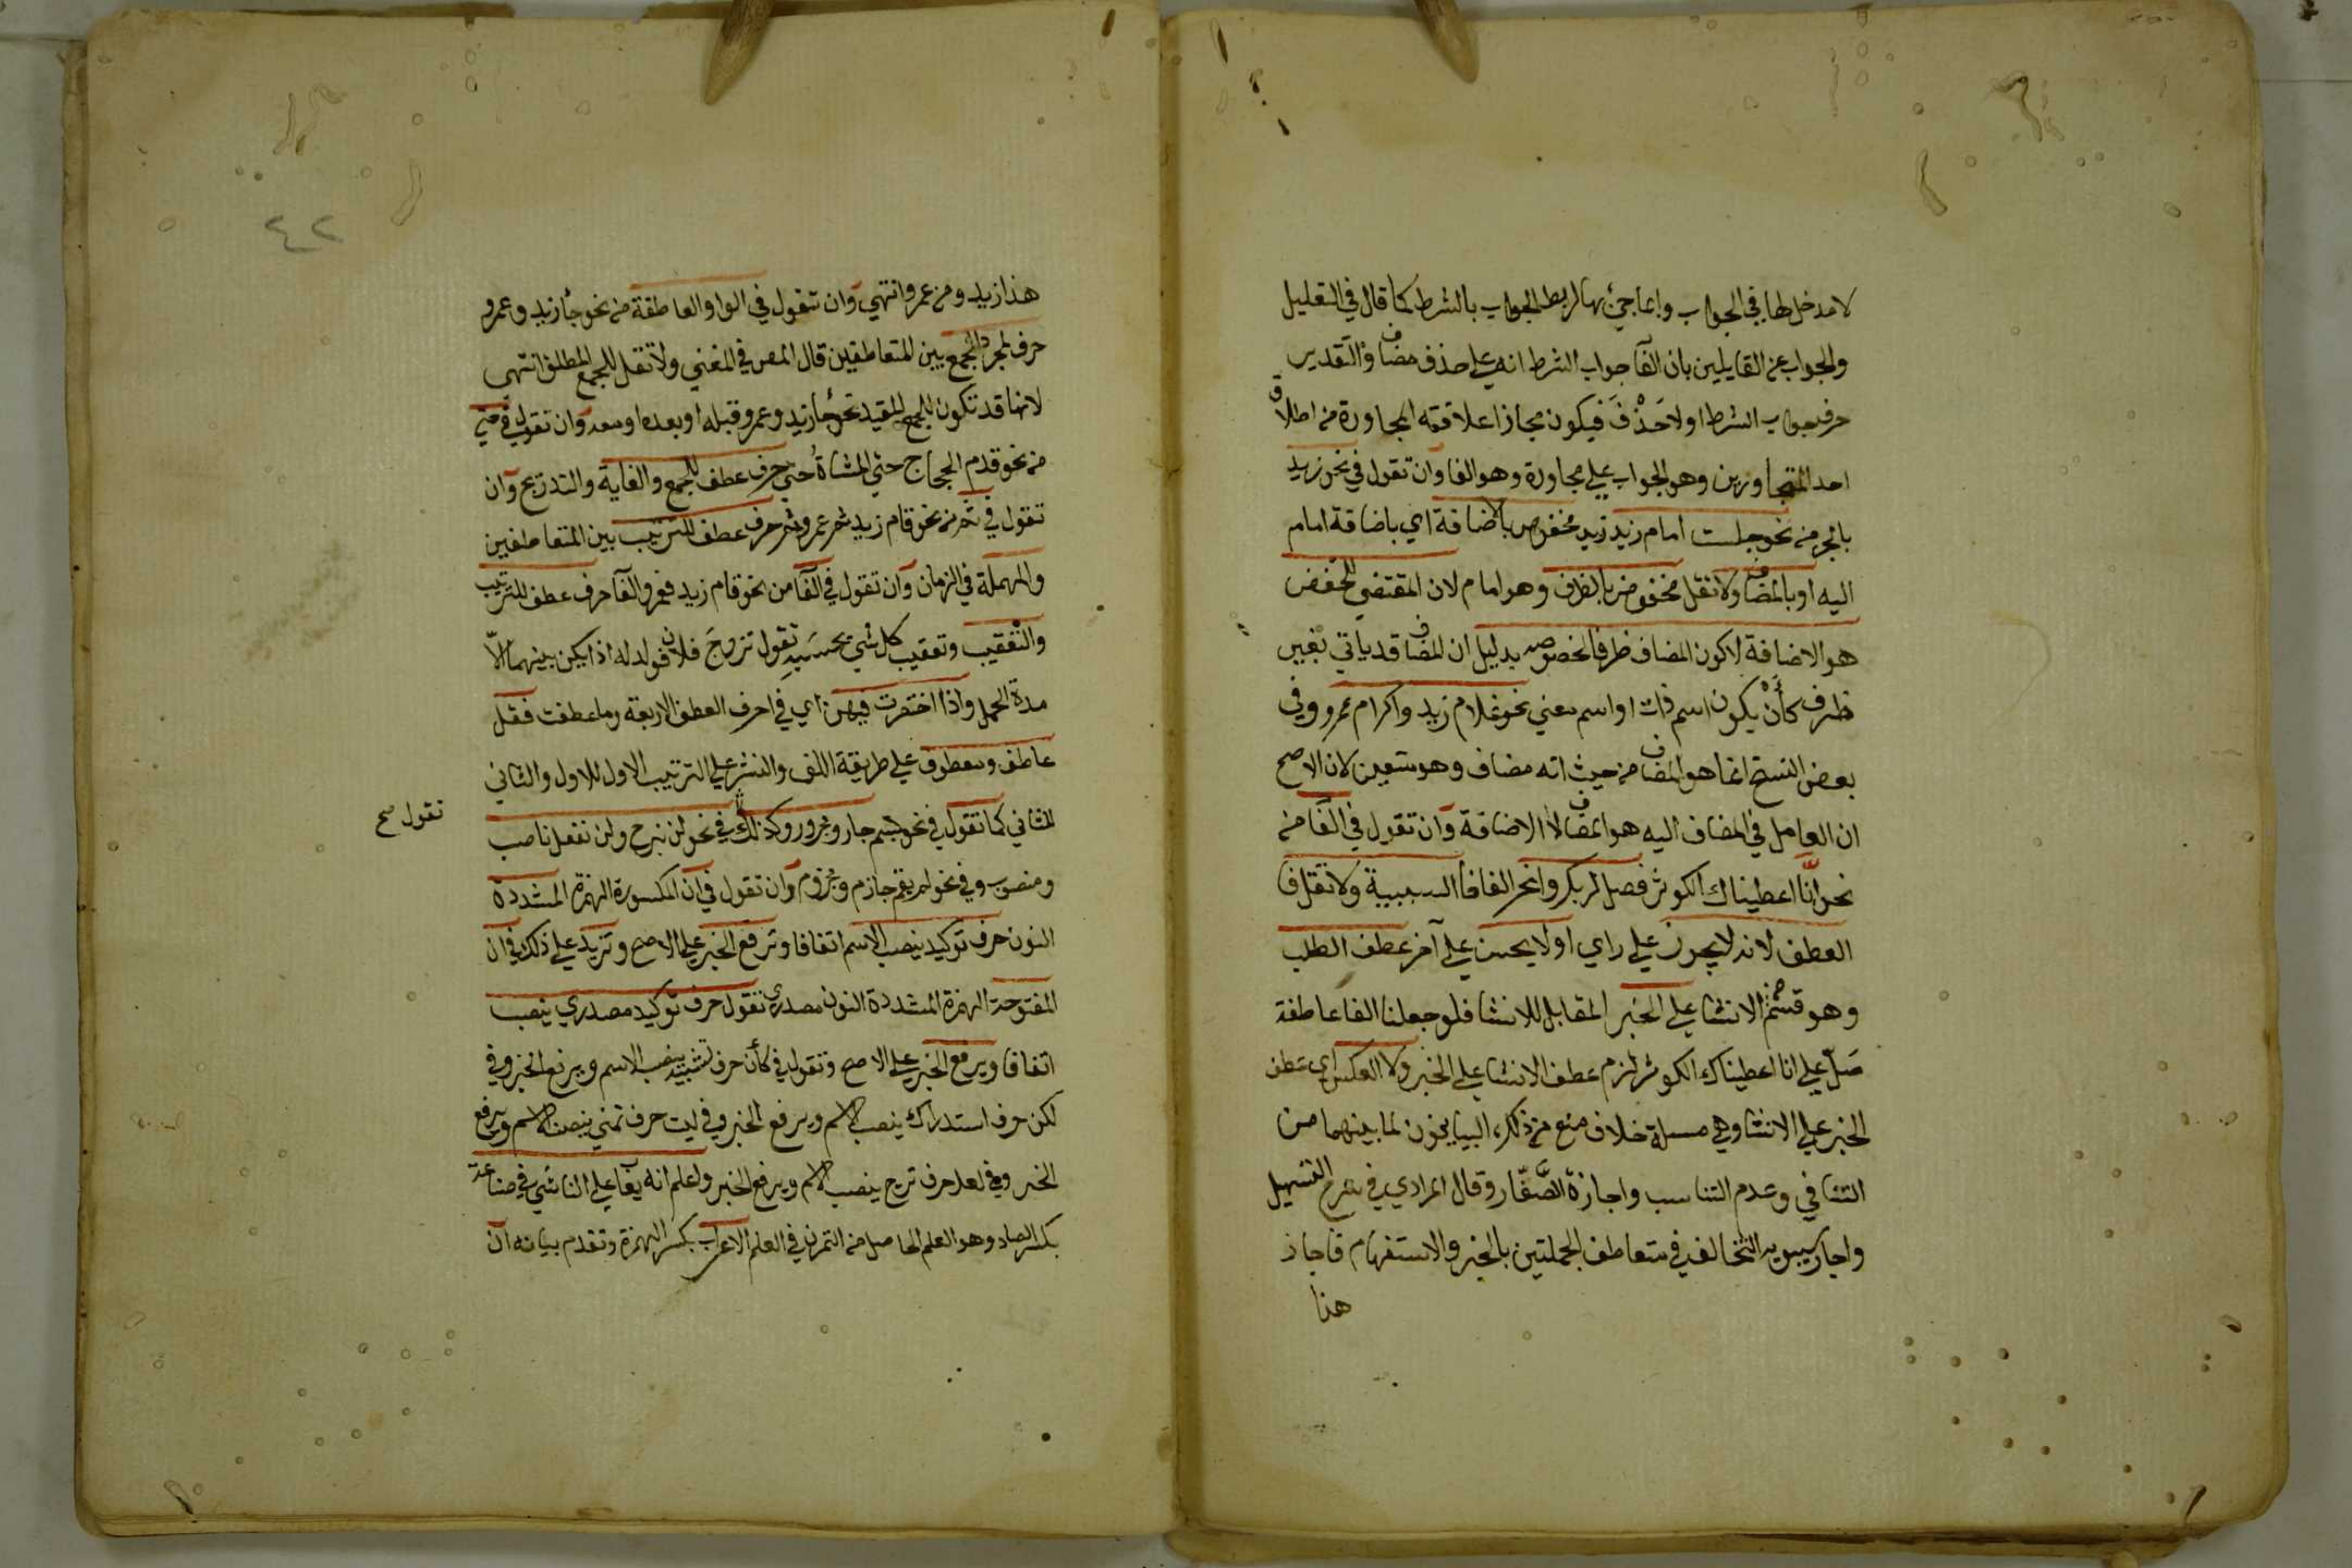 لا مدخل لها في الجواب وانما جيء بها لربط الجواب بالشرط كما قال في التعليل
والجواب عن القايلين بان الفآ جواب الشرط انه علي حذف مضاف والتقدير
حرف جواب الشرط اولا حَذْفَ فيكون مجازا علاقته المجاورة من اطلاق
احد المتجاورين وهو الجواب علي مجاوره وهو الفا وان تقول في نحو زيد
بالجر من نحو جلست امام زيد زيد مخفوض بالاضافة اي باضافة امام
اليه او بالمضاف ولا تقل مخفوض بالظرف وهو امام لان المقتضي للخفض
هو الاضافة لا كون المضاف ظرفا لخصوصه بدليل ان المضاف قد ياتي بغير
ظرف كأنْ يكون اسم ذات او اسم معني نحو غلام زيد واكرام عمرو وفي
بعض النسخ انما هو المضاف من حيث انه مضاف وهو متعين لان الاصح
ان العامل في المضاف اليه هو المضاف لا الاضافة وان تقول في الفآ من
نحو انَّا اعطيناك الكوثر فصل لربك وانحر الفا فآ السببية ولا تقل فا
العطف لانه لا يجوز علي راي او لا يحسن علي آخر عطف الطلب
وهو قسم من الانشا علي الخبر المقابل للانشا فلو جعلنا الفا عاطفة
صَلّ علي انا اعطيناك الكوثر لزم عطف الانشا علي الخبر ولا العكس اي عطف
الخبر علي الانشا وهي مسلة خلاف منع من ذكره البيانيون لما بينهما من
التنافي وعدم التناسب واجازة الصَّفّار وقال المرادي في شرح التسهيل
واجاز سيبويه التخالف في تعاطف الجملتين بالخبر والاستفهام فاجاز
هذا
٤٢
هذا زيد ومن عمرو انتهي وان تقول في الواو العاطفة من نحو جآ زيد وعمرو
حرف لمجرد الجمع بين المتعاطفين قال المص في المغني ولا تقل للجمع المطلق انتهي
لانها قد تكون للجمع المقيد نحو جآ زيد وعمرو قبله او بعده او معه وان تقول في حتي
من نحو قدم الحجاج حتي المشاةُ حتي حرف عطف للجمع والغاية والتدريج وان
تقول في ثم من نحو قام زيد ثم عمرو ثم حرف عطف للترتيب بين المتعاطفين
والمهملة في الزمان وان تقول في الفآ من نحو قام زيد فعمرو الفآ حرف عطف للترتيب
والتعقيب وتعقيب كل شي بحسَبِه تقول تزوجَ فلان فولد له اذا يكن بينهما الّا
مدة الحمل واذا اختصرت فيهن اي في احرف العطف الاربعة وما عطفت فقل
عاطف ومعطوف علي طريقة اللف والنشر علي الترتيب الاول للاول والثاني
للثاني كما تقول في نحو بسم جار ومجرور وكذلك في نحو لن نبرح ولن نفعل ناصب
تقول صح
ومنصوب وفي نحو لم يقم جازم ومجزوم وان تقول في ان المكسورة الهمزة المشددة
النون حرف توكيد ينصب الاسم اتفاقا وترفع الخبر علي الاصح وتزيد علي ذلك في ان
المفتوحة الهمزة المشددة النون مصدري تقول حرف توكيد مصدري ينصب
اتفاقا ويرفع الخبر علي الاصح وتقول في كأن حرف تشبيه ينصب الاسم ويرفع الخبر وفي
لكن حرف استدراك ينصب الاسم ويرفع الخبر وفي ليت حرف تمني ينصب الاسم ويرفع
الخبر وفي لعل حرف ترج ينصب الاسم ويرفع الخبر واعلم انه يعآ علي الناشي في صناعة
بكسر الصاد وهو العلم الحاصل من التمرن في العلم الاعراب بكسر الهمزة وتقدم بيانه ان